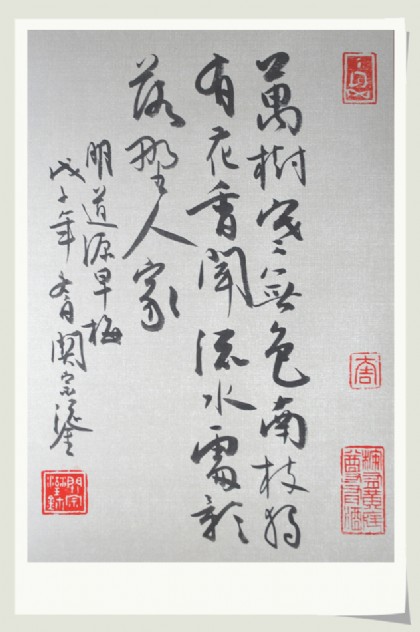 萬樹寒無色南枝獨
有花香聞流水處影
落野人家
明道源早梅
戊子年關宗鎏